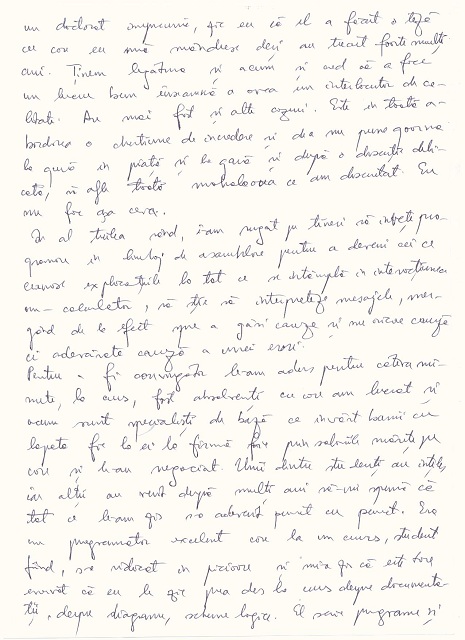 un doctorat împreună, zic eu că el a făcut o teză
cu care eu mă mândresc deși au trecut foarte mulți
ani. Ținem legătura și acum și cred că a face
un lucru bun înseamnă a avea un interlocutor de ca-
litate. Au mai fost și alte cazuri. Este în toată a-
bordarea o chestiune de încredere și de a nu pune goarna
la gură în piață și la gară și după o discuție deli-
cată, să afle toată mahalaua ce am discutat. Eu
nu fac așa ceva.
În al treilea rând, i-am rugat pe tineri să învețe pro-
gramare în limbaj de asamblare pentru a deveni cei ce
cunosc explicațiile la tot ce se întâmplă în interacțiunea
om - calculator, să știe să interpreteze mesajele, mer-
gând de la efect spre a găsi cauze și nu orice cauză
ci adevărata cauză a unei erori.
Pentru a fi convingător le-am adus pentru câteva mi-
nute, la curs, foști absolvenți cu care am lucrat și
acum sunt specialiști de bază ce învârt banii cu
lopata fie la ei la firmă fie prin salariile mărite pe
care și le-au negociat. Unii dintre studenți au înțeles,
iar alții au venit după mulți ani să-mi spună că
tot ce le-am zis s-a adeverit punct cu punct. Era
un programator excelent care la un curs, student
fiind, s-a ridicat în picioare și mi-a zis că este tare
enervat că eu le zic prea des la curs despre documenta-
ții, despre diagrame, scheme logice. El scrie programe și